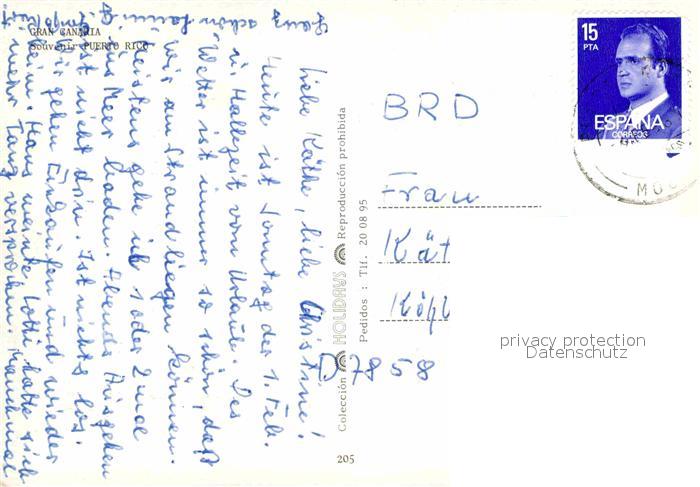 GRAN CANARIA
Souvenir PUERTO RICO
Liebe Käthe, liebe Christine!
Heute ist Sonntag der 1. Feb.
u. Halbzeit vom Urlaub. Das
Wetter ist immer so schön, daß
wir am Strand liegen können.
Meistens gehe ich 1 oder 2 mal
ins Meer baden. Abends Ausgehen
ist nicht drin. Ist nichts los.
Wir gehen Einkaufen und wieder
heim. Hans meinte Lotti hatte sich
mehr Tanz versprochen. Manchmal
ganz schön
Colección HOLIDAYS Reproducción prohibida
Pedidos : Tlf. 20 08 95
205
15
PTA
ESPAÑA
CORREOS
MOG
BRD
Frau
Kät
Köhl
D 7858
privacy protection
Datenschutz